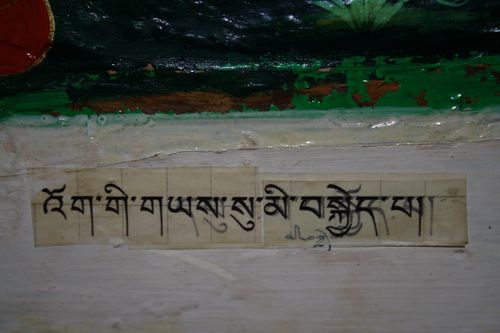 འོག་གི་གཡས་སུ་མི་བསྐྱོད་པ།